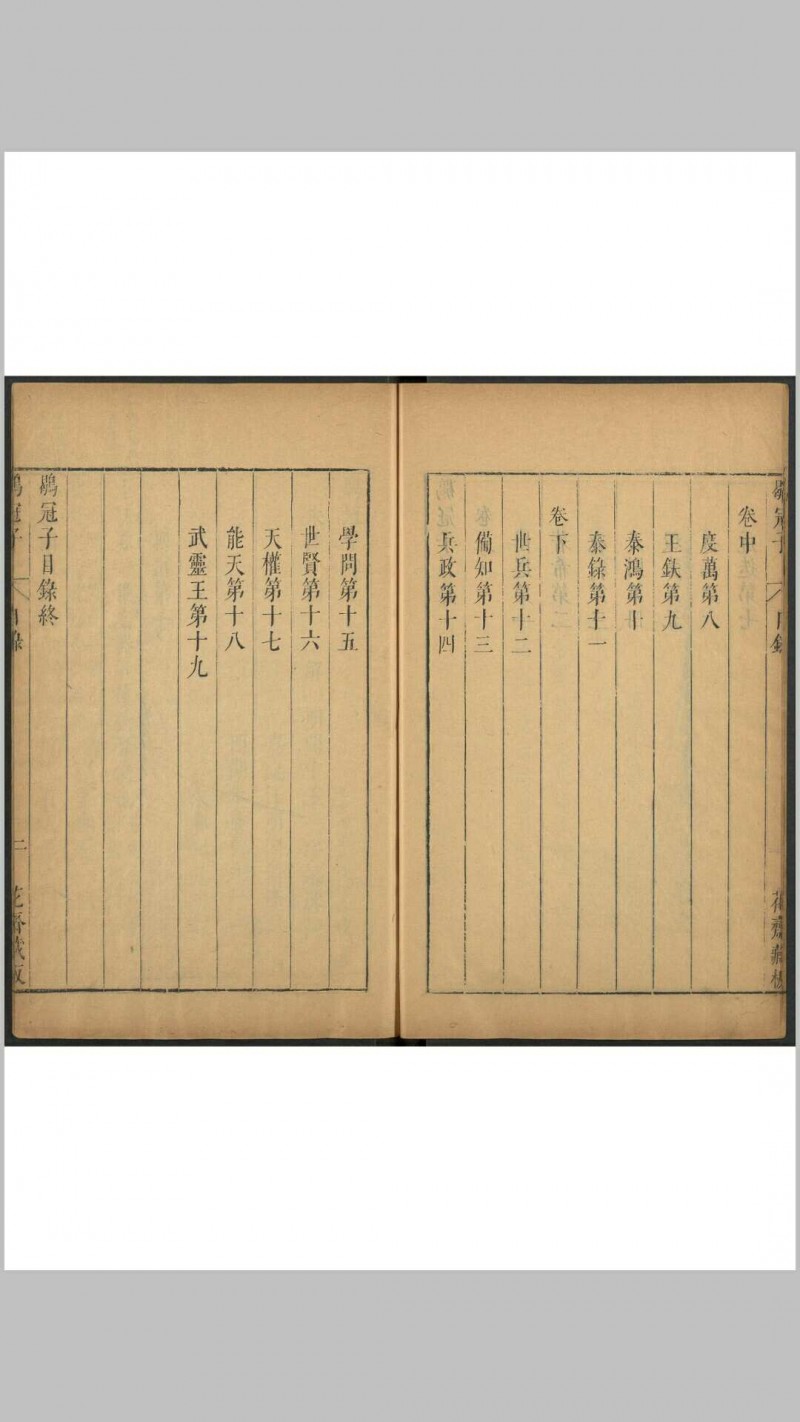 鶡冠子
目錄
花齋藏板
卷中
度萬第八
王鈇第九
泰鴻第十
泰錄第十一
卷下
世兵第十二
僃知第十三
兵政第十四
學問第十五
世賢第十六
天權第十七
能天第十八
武靈王第十九
鶡冠子目錄終
鶡冠子
目錄
二
花齋藏板